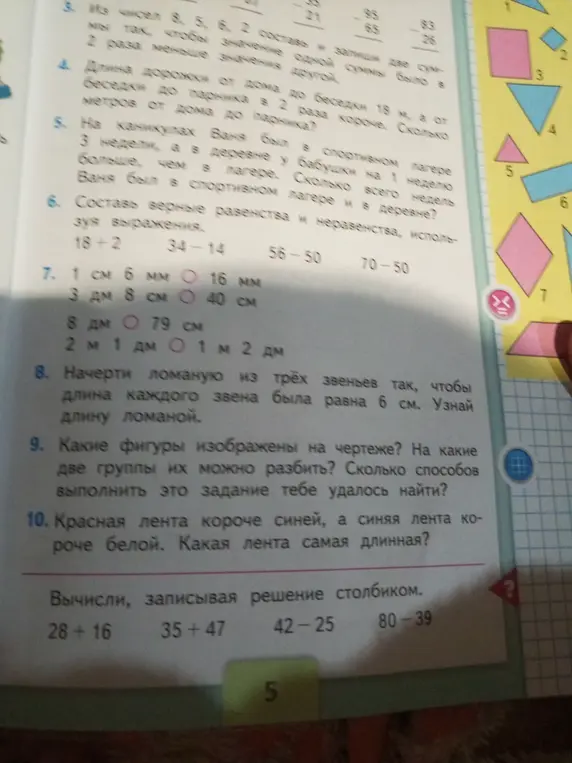 35 95 83
21 65 26
3. Из чисел 8, 5, 6, 2 составь и запиши две сум-
мы так, чтобы значение одной суммы было в
2 раза меньше значения другой.
4. Длина дорожки от дома до беседки 18 м, а от
беседки до парника в 2 раза короче. Сколько
метров от дома до парника?
5. На каникулах Ваня был в спортивном лагере
3 недели, а в деревне у бабушки на 1 неделю
больше, чем в лагере. Сколько всего недель
Ваня был в спортивном лагере и в деревне?
6. Составь верные равенства и неравенства, исполь-
зуя выражения.
18 + 2 34 − 14 56 − 50 70 − 50
7. 1 см 6 мм ○ 16 мм
3 дм 8 см ○ 40 см
8 дм ○ 79 см
2 м 1 дм ○ 1 м 2 дм
8. Начерти ломаную из трёх звеньев так, чтобы
длина каждого звена была равна 6 см. Узнай
длину ломаной.
9. Какие фигуры изображены на чертеже? На какие
две группы их можно разбить? Сколько способов
выполнить это задание тебе удалось найти?
10. Красная лента короче синей, а синяя лента ко-
роче белой. Какая лента самая длинная?
Вычисли, записывая решение столбиком.
28 + 16 35 + 47 42 − 25 80 − 39
5
1
2
3
4
5
6
7
?